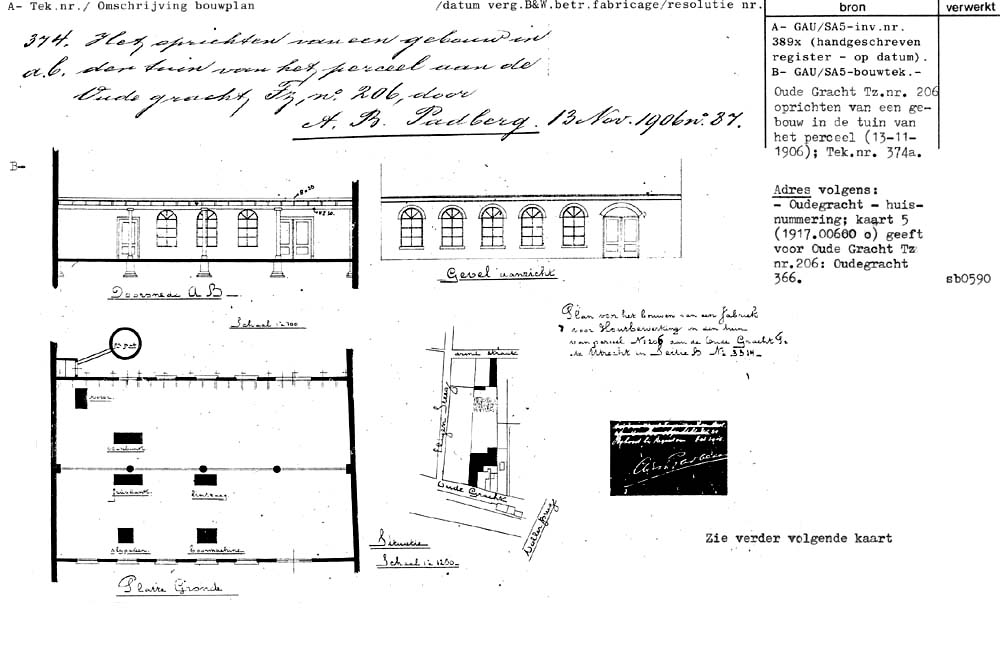 A- Tek.nr./ Omschrijving bouwplan
/datum verg.B&W.betr.fabricage/resolutie nr.
bron
verwerkt
374. Het oprichten van een gebouw in
a.b. der tuin van het perceel aan de
Oude gracht, Tz, no. 206, door
A. B. Padberg. 13 Nov. 1906 no. 37.
A- GAU/SA5-inv.nr.
389x (handgeschreven
register - op datum).
B- GAU/SA5-bouwtek.-
Oude Gracht Tz.nr. 206
oprichten van een ge-
bouw in de tuin van
het perceel (13-11-
1906); Tek.nr. 374a.
Adres volgens:
- Oudegracht - huis-
nummering; kaart 5
(1917.00600 o) geeft
voor Oude Gracht Tz
nr.206: Oudegracht
366.
sb0590
B-
Doorsnede A B
Gevel aanzicht
Schaal 1 à 100
Plan van het bouwen van een fabriek
voor Houtbewerking in den tuin
van perceel No 206 aan de Oude Gracht
te Utrecht in Sectie B No
Oude Gracht
Situatie
Schaal 1 à 1250
boormachine
Platte Gronde
Zie verder volgende kaart